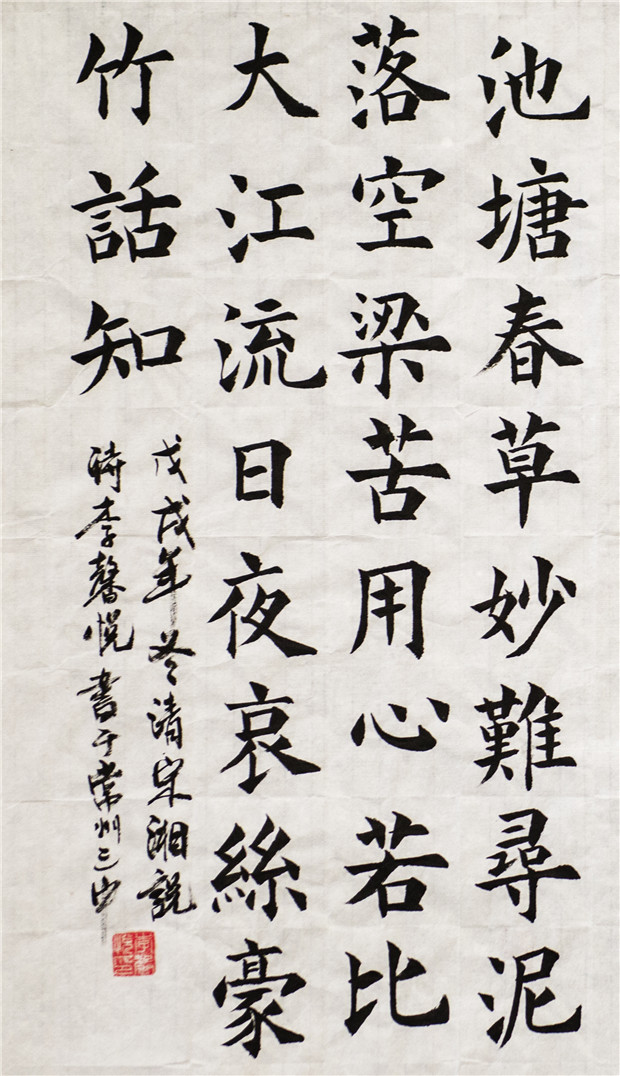 池塘春草妙難尋泥
落空梁苦用心若比
大江流日夜哀絲豪
竹話知
戊戌年冬清宋湘說
詩李馨悅書于常州三中